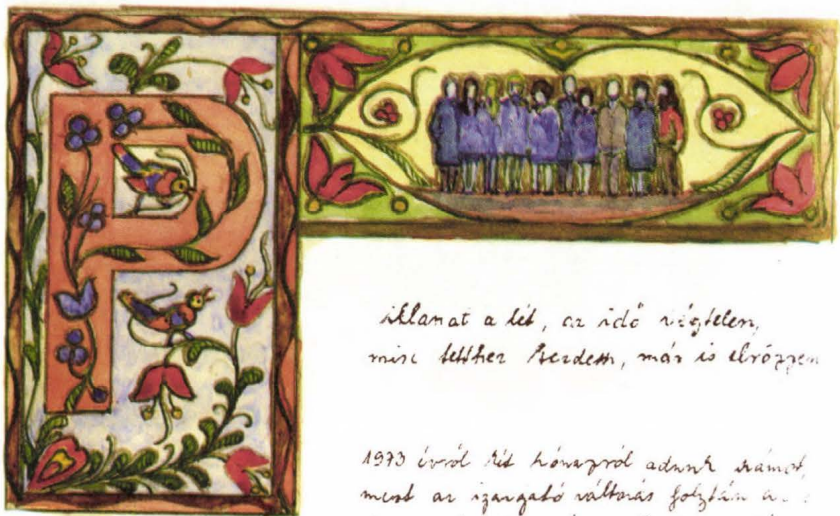 P
illanat a lét, az idő végtelen,
mire tetthez kezdem, már is elröppen
1973 évről két hónapról adunk számot,
mert az igazgató váltás folytán a